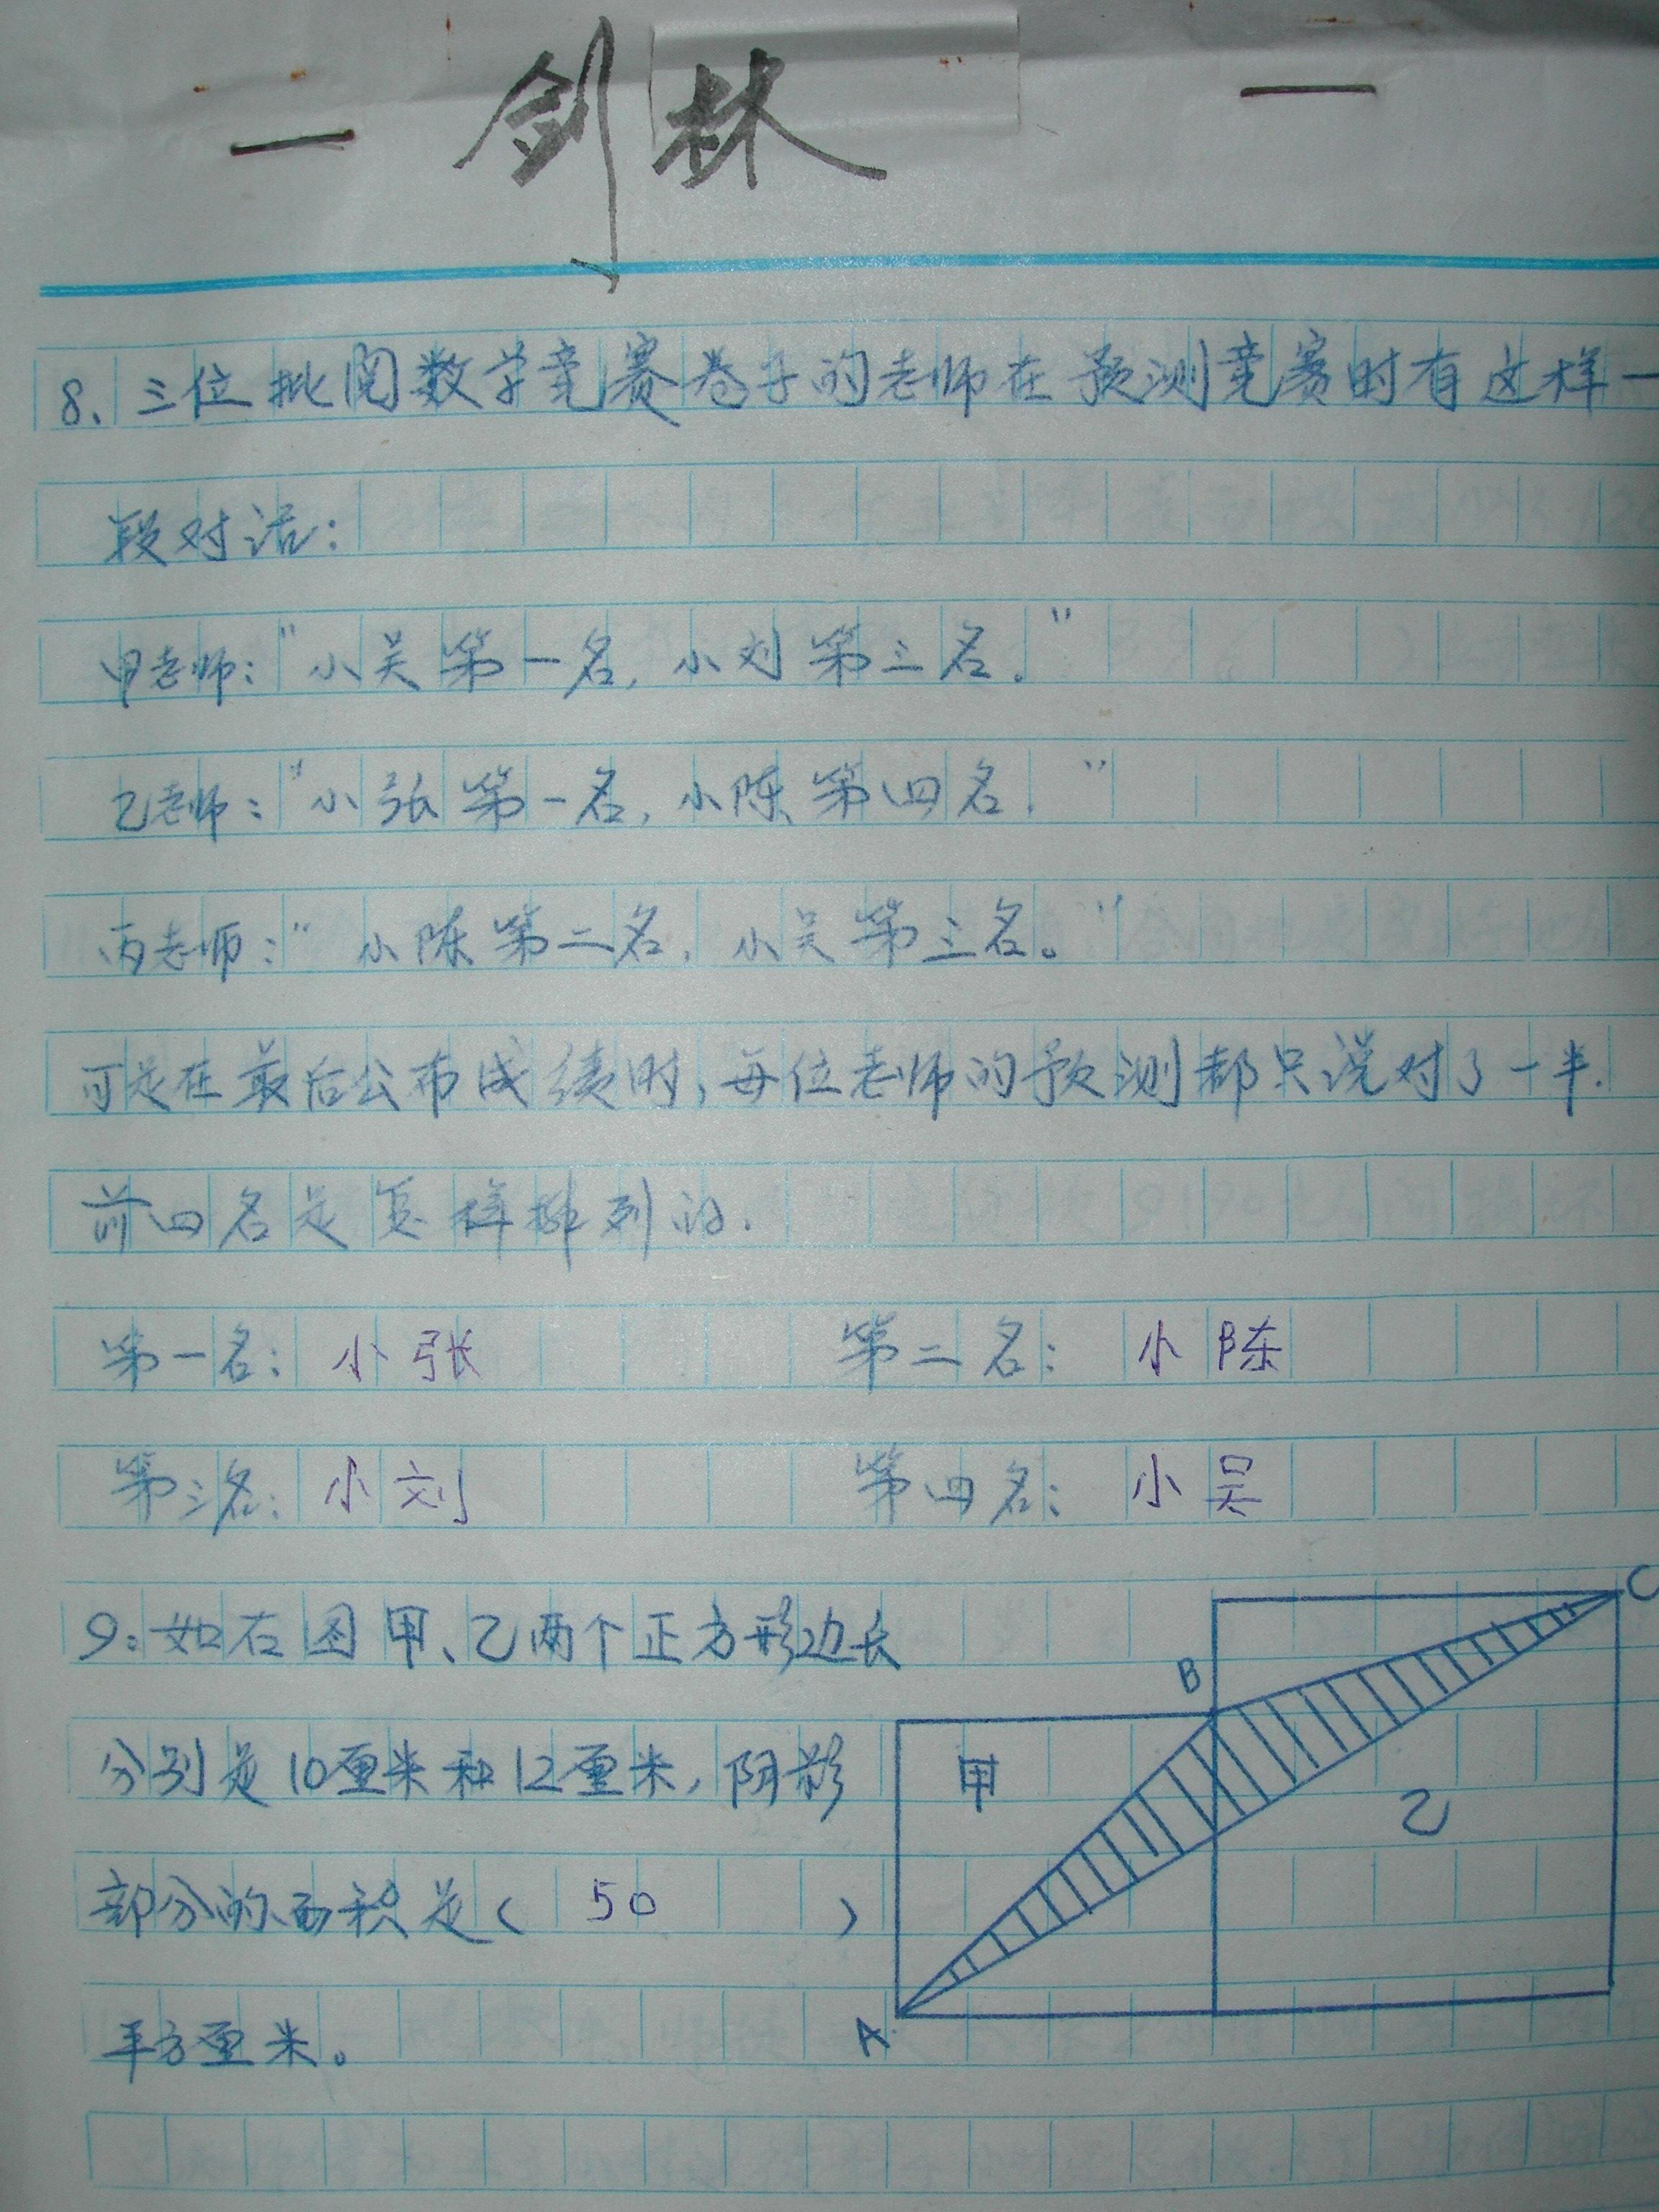 剑林
8、三位批阅数学竞赛卷子的老师在预测竞赛时有这样一
段对话:
甲老师:"小吴第一名,小刘第三名."
乙老师:"小张第一名,小陈第四名."
丙老师:"小陈第二名,小吴第三名。"
可是在最后公布成绩时,每位老师的预测都只说对了一半.
前四名是怎样排列的.
第一名: 小张 第二名: 小陈
第三名: 小刘 第四名: 小吴
9:如右图甲、乙两个正方形边长
分别是10厘米和12厘米,阴影
部分的面积是( 50 )
平方厘米。
C
B
甲
乙
A